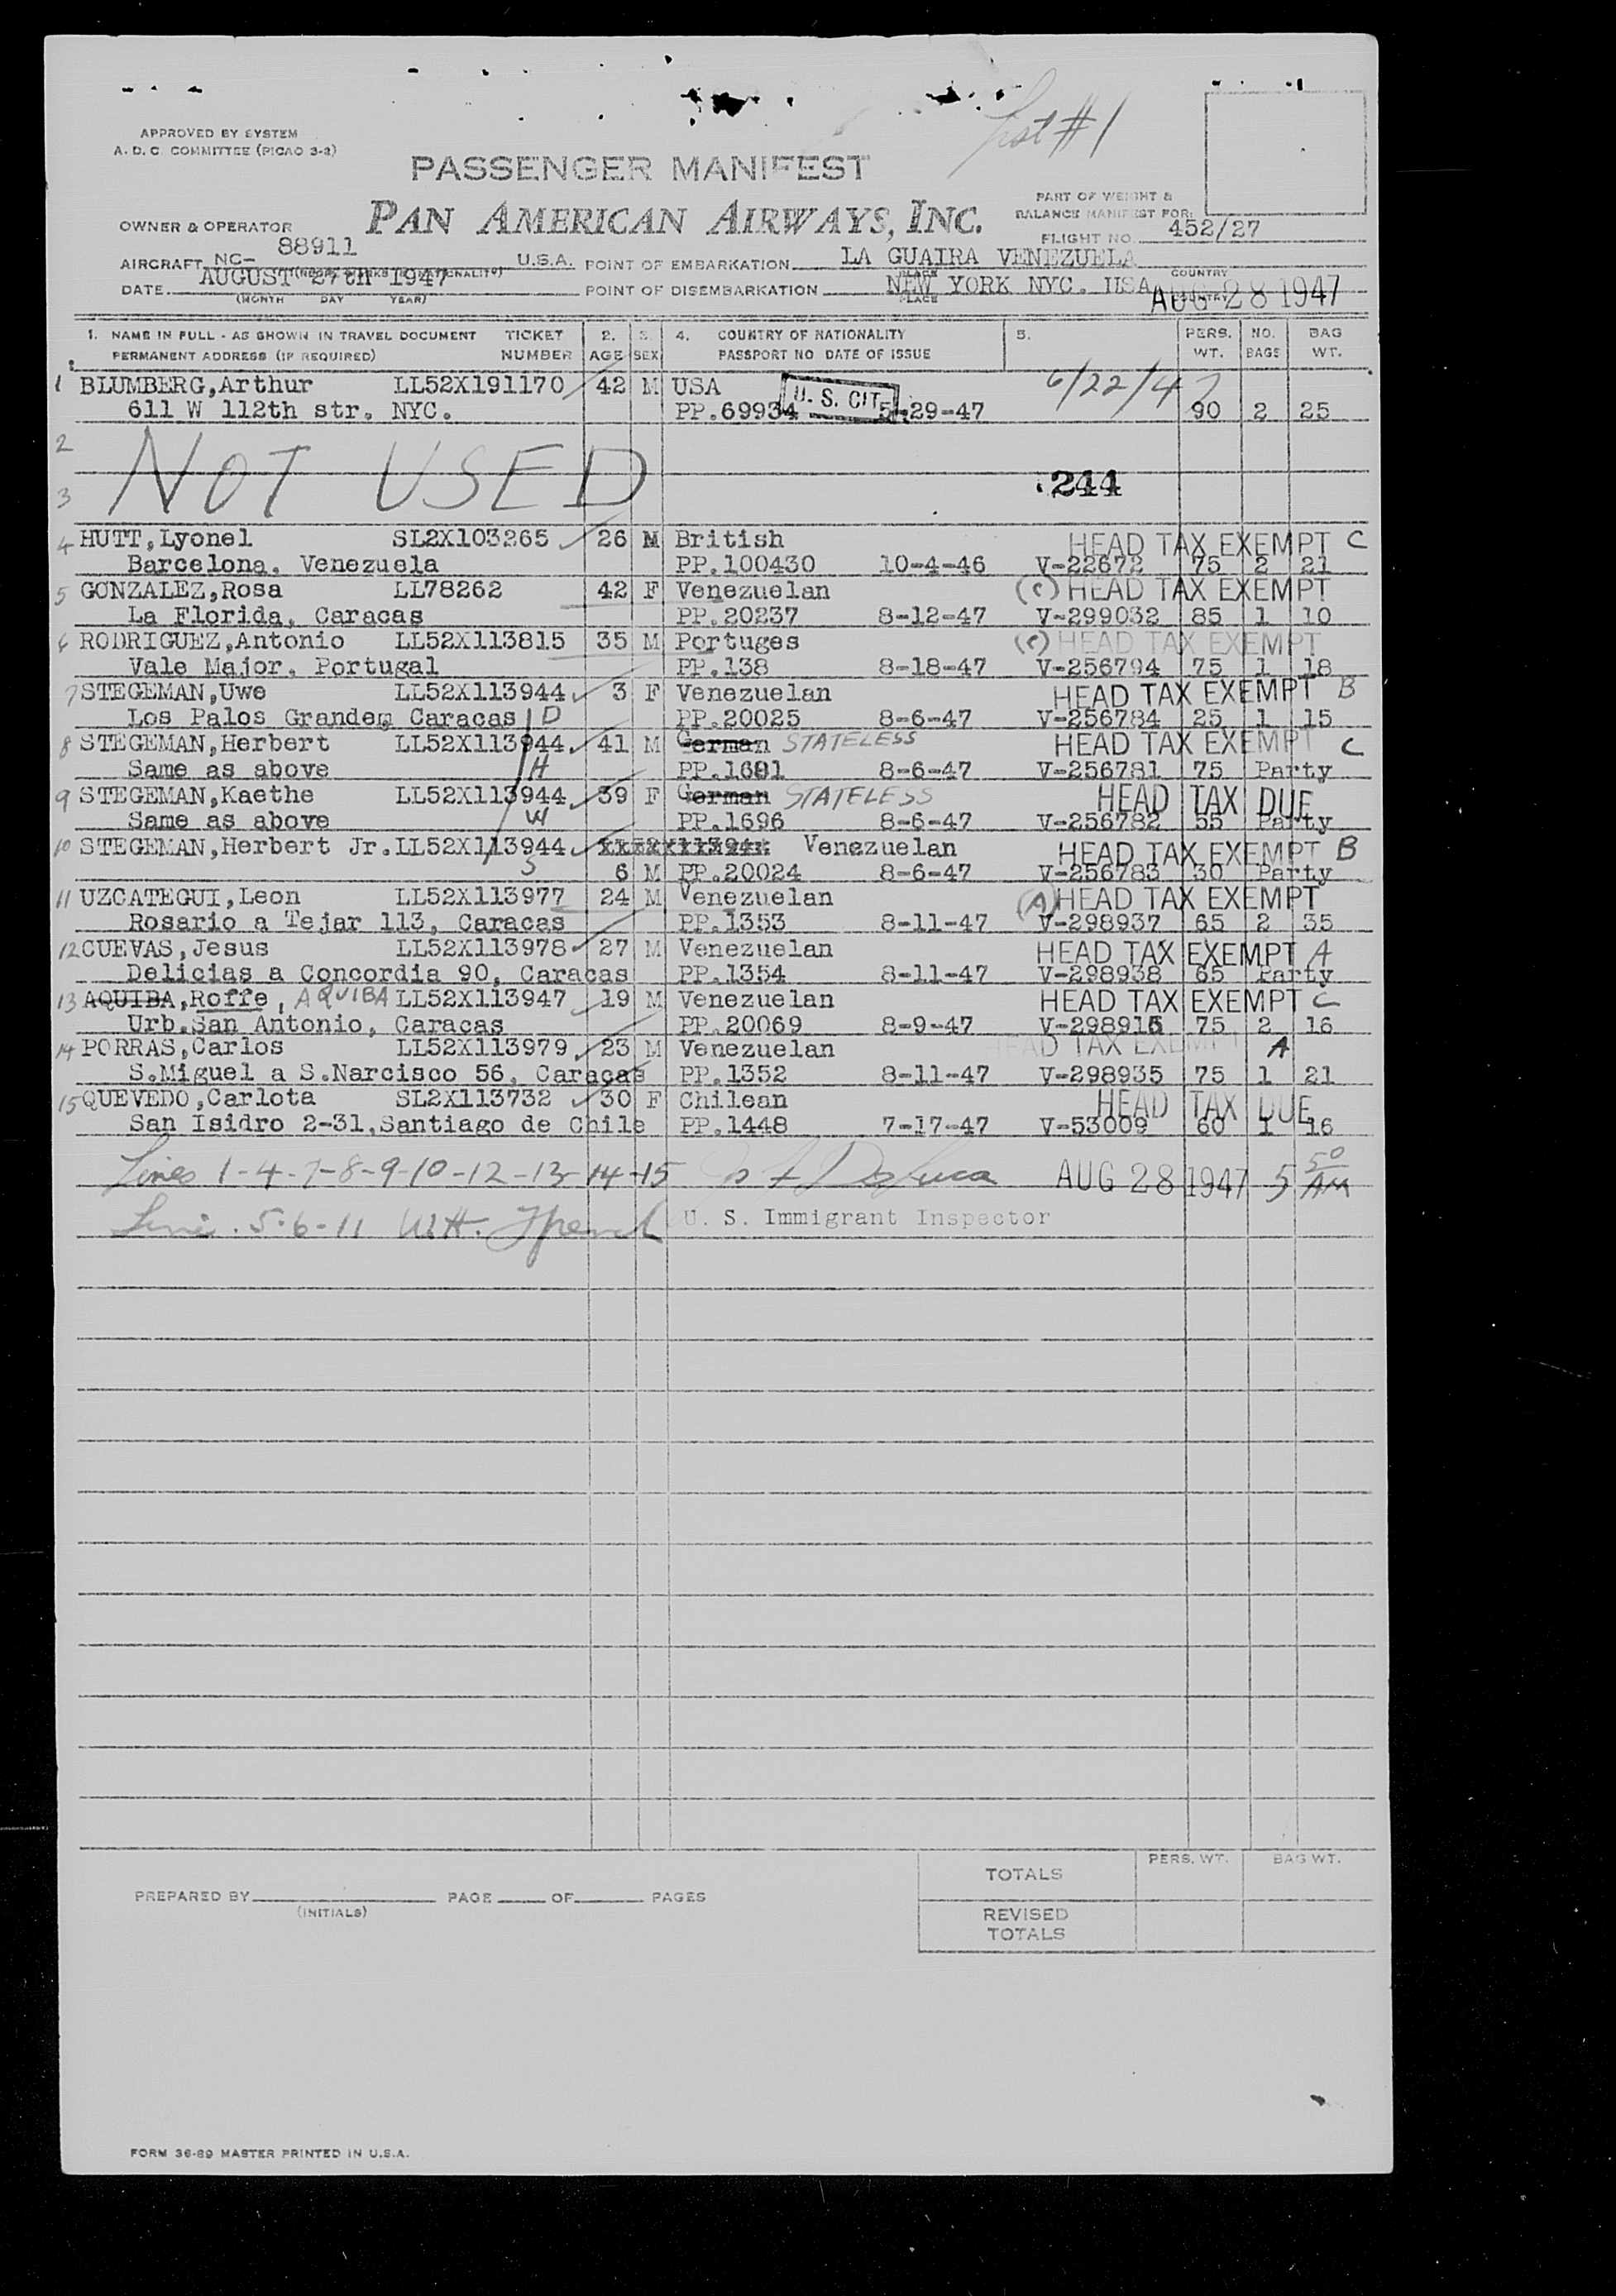 List #1
APPROVED BY SYSTEM
A. D. C. COMMITTEE (PICAO 3-3)
PASSENGER MANIFEST
PART OF WEIGHT &
BALANCE MANIFEST FOR:
OWNER & OPERATOR PAN AMERICAN AIRWAYS, INC.
FLIGHT NO. 452/27
AIRCRAFT NC- 88911 U.S.A. POINT OF EMBARKATION LA GUAIRA VENEZUELA
PLACE COUNTRY
DATE AUGUST 27th 1947 POINT OF DISEMBARKATION NEW YORK NYC. USA
(MONTH DAY YEAR) PLACE
AUG 28 1947
1. NAME IN FULL - AS SHOWN IN TRAVEL DOCUMENT TICKET 2. 3. 4. COUNTRY OF NATIONALITY 5. PERS. NO. BAG
PERMANENT ADDRESS (IF REQUIRED) NUMBER AGE SEX PASSPORT NO DATE OF ISSUE WT. BAGS WT.
1 BLUMBERG,Arthur LL52X191170 42 M USA 6/22/47
611 W 112th str. NYC. PP.69934 U. S. CIT. 5-29-47 90 2 25
2
NOT USED
3 244
4 HUTT,Lyonel SL2X103265 26 M British HEAD TAX EXEMPT C
Barcelona. Venezuela PP.100430 10-4-46 V-22672 75 2 21
5 GONZALEZ,Rosa LL78262 42 F Venezuelan (C) HEAD TAX EXEMPT
La Florida, Caracas PP.20237 8-12-47 V-299032 85 1 10
6 RODRIGUEZ,Antonio LL52X113815 35 M Portuges (C) HEAD TAX EXEMPT
Vale Major. Portugal PP.138 8-18-47 V-256794 75 1 18
7 STEGEMAN,Uwe LL52X113944 3 F Venezuelan HEAD TAX EXEMPT B
Los Palos Grandes Caracas D PP.20025 8-6-47 V-256784 25 1 15
8 STEGEMAN,Herbert LL52X113944 41 M German STATELESS HEAD TAX EXEMPT C
Same as above H PP.1691 8-6-47 V-256781 75 Party
9 STEGEMAN,Kaethe LL52X113944 39 F German STATELESS HEAD TAX DUE
Same as above W PP.1696 8-6-47 V-256782 55 Party
10 STEGEMAN,Herbert Jr. LL52X113944 Venezuelan HEAD TAX EXEMPT B
S 6 M PP.20024 8-6-47 V-256783 30 Party
11 UZCATEGUI,Leon LL52X113977 24 M Venezuelan (A) HEAD TAX EXEMPT
Rosario a Tejar 113, Caracas PP.1353 8-11-47 V-298937 65 2 35
12 CUEVAS,Jesus LL52X113978 27 M Venezuelan HEAD TAX EXEMPT A
Delicias a Concordia 90, Caracas PP.1354 8-11-47 V-298938 65 Party
13 AQUIBA,Roffe, AQUIBA LL52X113947 19 M Venezuelan HEAD TAX EXEMPT C
Urb.San Antonio, Caracas PP.20069 8-9-47 V-298915 75 2 16
14 PORRAS,Carlos LL52X113979 23 M Venezuelan HEAD TAX EXEMPT A
S.Miguel a S.Narcisco 56, Caracas PP.1352 8-11-47 V-298935 75 1 21
15 QUEVEDO,Carlota SL2X113732 30 F Chilean HEAD TAX DUE
San Isidro 2-31,Santiago de Chile PP.1448 7-17-47 V-53009 60 1 16
Lines 1-4-7-8-9-10-12-13-14-15 DeLuca AUG 28 1947 5 50 AM
Line. 5-6-11 U. S. Immigrant Inspector
TOTALS PERS. WT. BAG WT.
PREPARED BY PAGE OF PAGES
(INITIALS)
REVISED
TOTALS
FORM 36-89 MASTER PRINTED IN U.S.A.